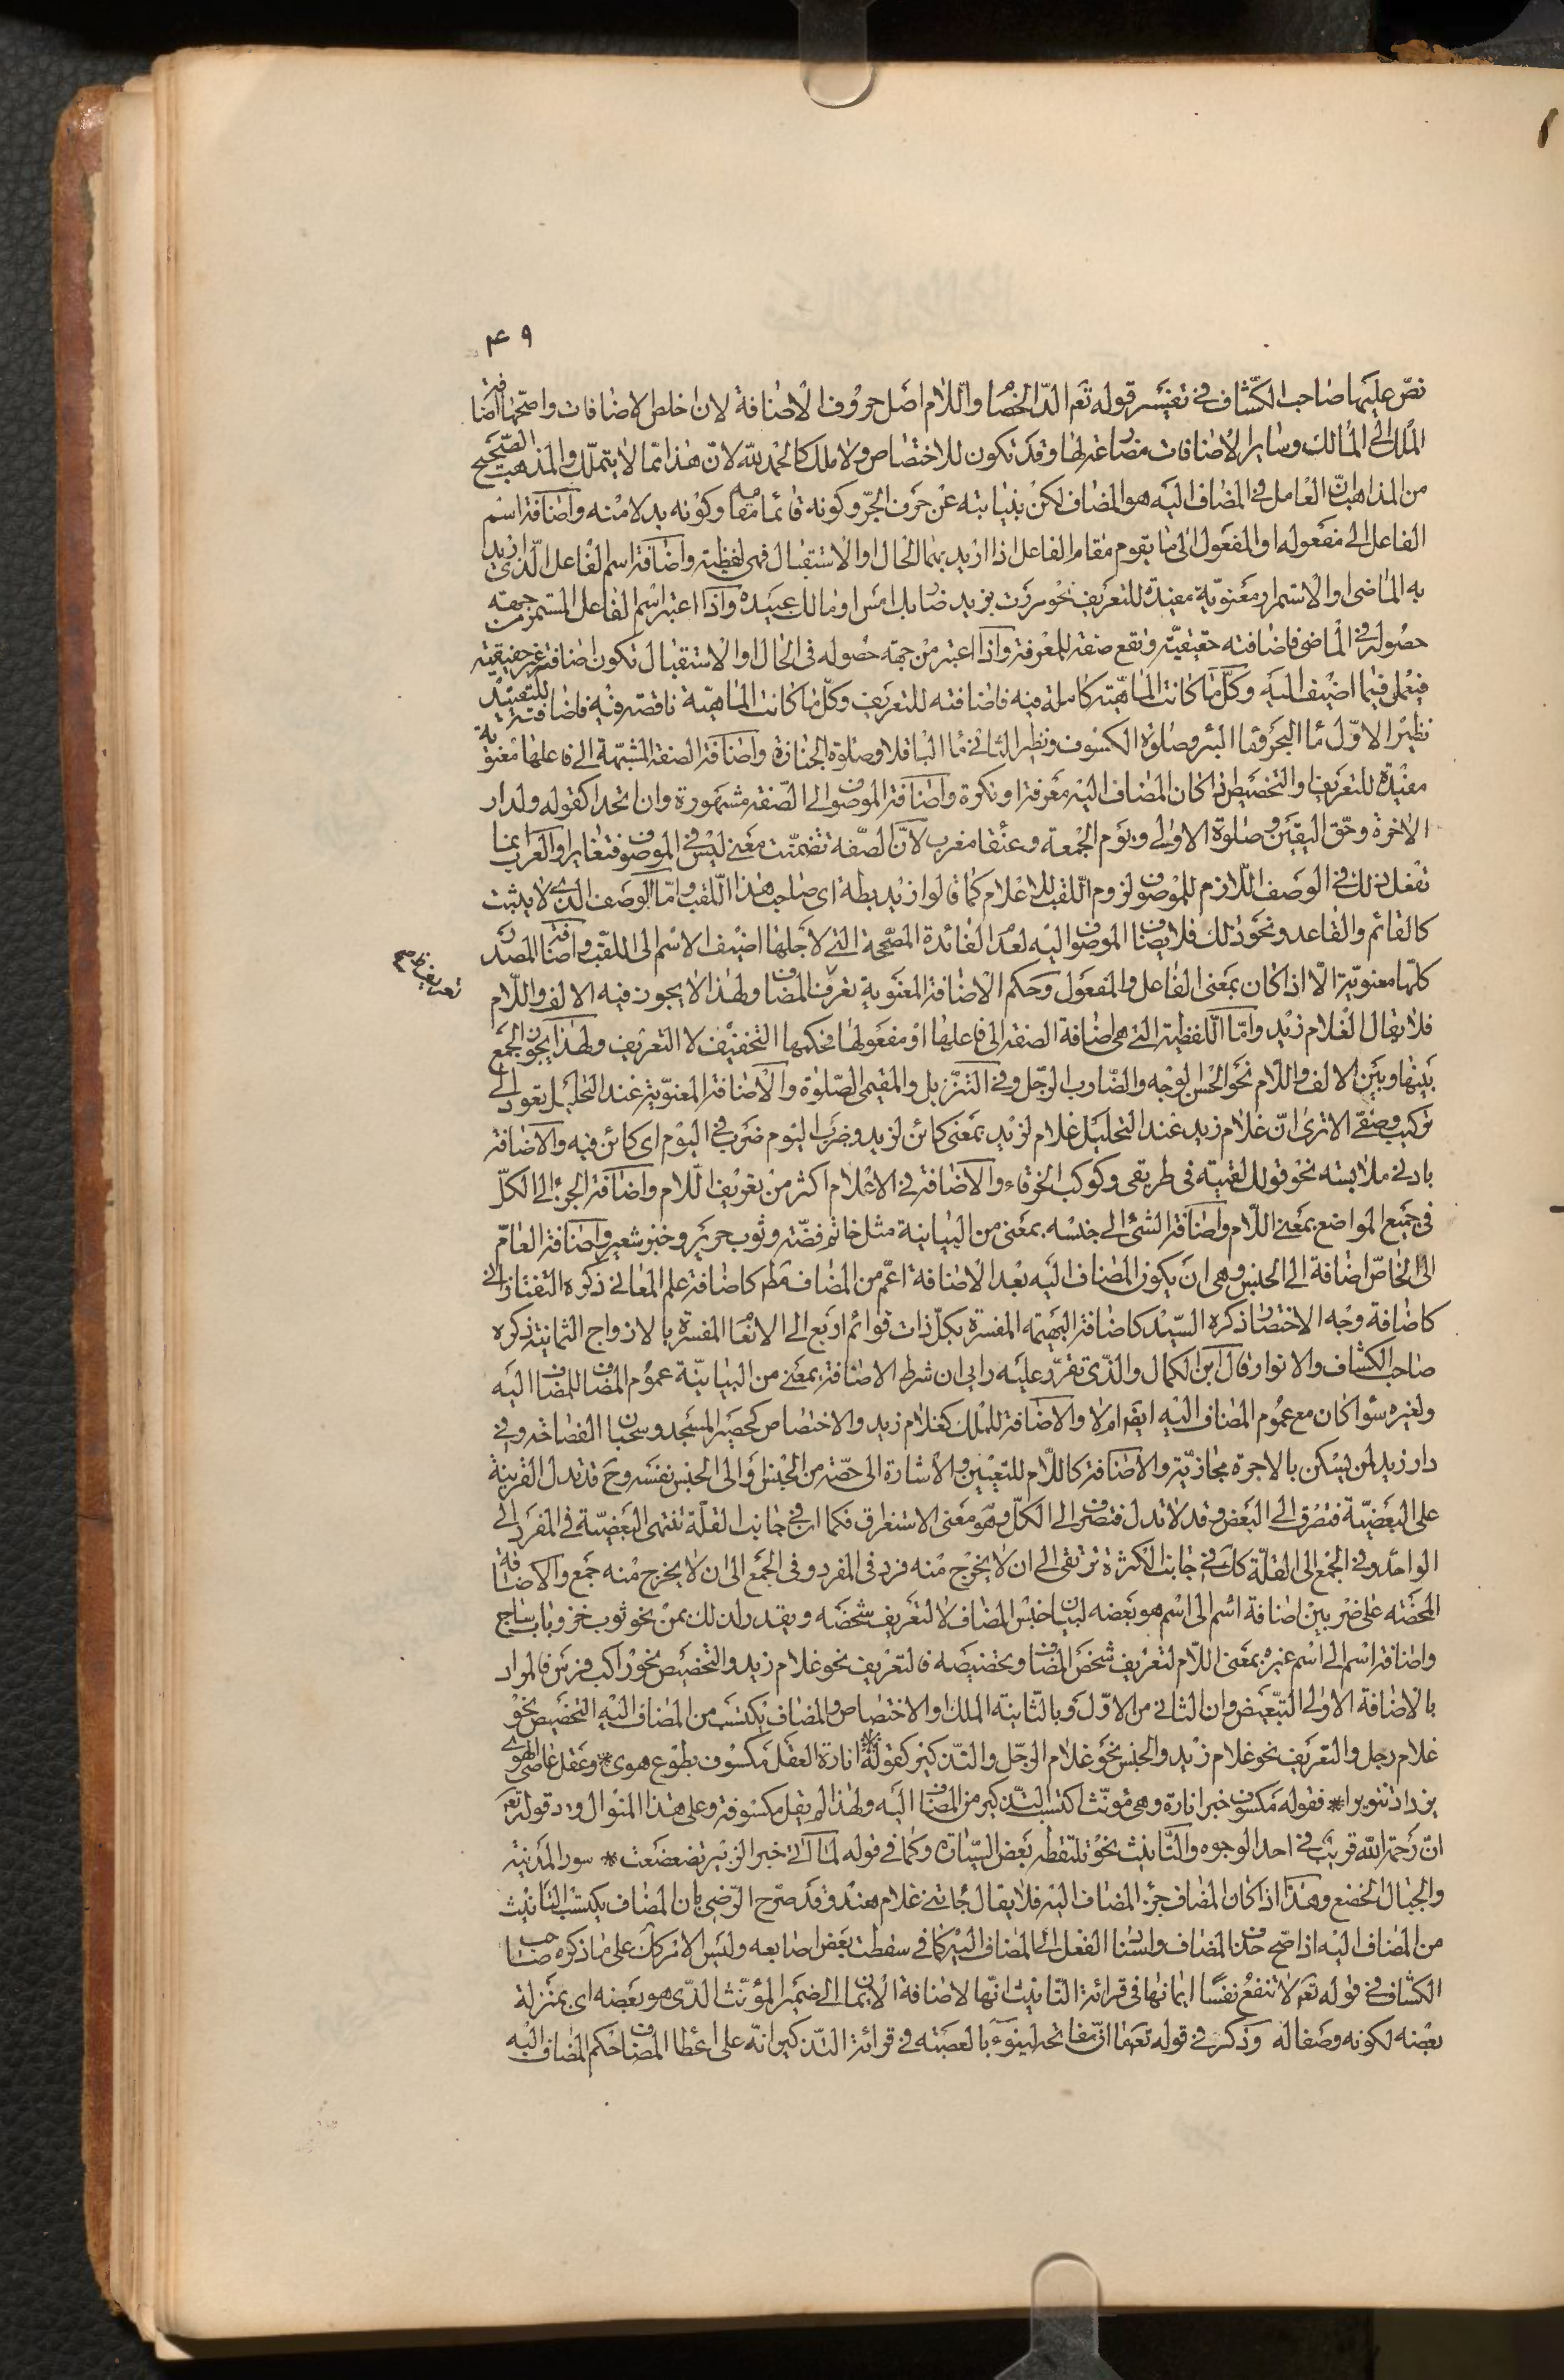 ۴۹
نصّ عليها صاحب الكشّاف فى تفيسر قوله تعم الدّ الخصا واللام اصل حروف الاضافة لان اخلص الاضافات واصحّها اضافة
الملك الى المالك وساير الاضافات مضارعة لها وقد تكون للاختصاص ولا ملك كالحمد لله لانّ هذا ممّا لا يتملّك والمذهب الصّحيح
من المذاهب انّ العامل فى المضاف اليه هو المضاف لكن بنيابته عن حرف الجرّ وكونه قائما مقامه وكونه بدلا منه واضافة اسم
الفاعل الى مفعوله او المفعول الى ما يقوم مقام الفاعل اذا اريد بهما الحال او الاستقبال فهى لفظية واضافة اسم الفاعل الذى اريد
به الماضى والاستمرار معنوية مفيدة للتعريف نحو مررت بزيد ضاربك امس او مالك عبيده واذا اعتبر اسم الفاعل المستمر من جهة
حصوله فى الماضى فاضافته حقيقيّة وتقع صفة للمعرفة واذا اعتبر من جهة حصوله فى الحال او الاستقبال تكون اضافته غير حقيقية
فيعمل فيما اضيف اليه وكلّ ما كانت الماهيّة كاملة فيه فاضافته للتعريف وكلّ ما كانت الماهيّة ناقصة فيه فاضافته للتقييد
نظير الاوّل ماء البحر وماء البئر وصلوة الكسوف ونظير الثانى ماء الباقلا وصلوة الجنازة واضافة الصفة المشبّهة الى فاعلها معنوية
مفيدة للتعريف والتخصيص اذا كان المضاف اليه معرفة او نكرة واضافة الموصوف الى الصّفة مشهورة وان اتحدا كقوله ولدار
الاخرة وحق اليقين وصلوة الاولى ويوم الجمعة وعنقا مغرب لانّ الصّفة تضمّنت معنى ليس فى الموصوف فتغايرا والعرب انما
تفعل ذلك فى الوصف اللازم للموصوف لزوم اللقب للاعلام كما قالوا زيد بطة اى صاحب هذا اللقب وامّا الوصف الذى لا يثبت
كالقائم والقاعد ونحو ذلك فلا يضاف الموصوف اليه لعدم الفائدة المصحّحة التى لاجلها اضيف الاسم الى اللقب واضافة المصدر
كلّها معنويّة الّا اذا كان بمعنى الفاعل والمفعول وحكم الاضافة المعنوية تعرّف المضاف ولهذا لا يجوز فيه الالف واللّام
فلا يقال الغلام زيد وامّا اللفظية التى هى اضافة الصفة الى فاعلها او مفعولها فحكمها التخفيف لا التعريف ولهذا يجوز الجمع
بينها وبين الالف واللام نحو الحسن الوجه والضارب الرجل وفى التنزيل والمقيمى الصّلوة والاضافة المعنويّة عند التحليل تعود الى
تركيب وصفى الا ترى انّ غلام زيد عند التحليل غلام لزيد بمعنى كائن لزيد وضرب اليوم ضرب فى اليوم اى كائن فيه والاضافة
بادنى ملابسته نحو قولك لقيته فى طريقى وكوكب الخرقاء والاضافة فى الاعلام اكثر من تعريف اللام واضافة الجزء الى الكلّ
فى جميع المواضع بمعنى اللّام واضافة الشئ الى جنسه بمعنى من البيانية مثل خاتم فضّة وثوب حرير وخبز شعير واضافة العامّ
الى الخاصّ اضافة الى الجنس وهى ان يكون المضاف اليه بعد الاضافة اعّم من المضاف مطم كاضافة علم المعانى ذكره التفتازانى
كاضافة وجه الاختصار ذكره السيّد كاضافة البهيمة المفسرة بكلّ ذات قوائم اربع الى الانعام المفسرة بالازواج الثمانية ذكره
صاحب الكشاف والانوار قال ابن الكمال والذّى تقرّر عليه رايى ان شرط الاضافة بمعنى من البيانيّة عموم المضاف للمضاف اليه
ولغيره سوا كان مع عموم المضاف اليه ايضه ام لا والاضافة للملك كغلام زيد والاختصاص كحصير المسجد وسحبان الفصاحة وفى
دار زيد لمن يسكن بالاجرة مجازيّة والاضافة كاللّام للتعيين والاشارة الى حصّة من الجنس والى الجنس نفسه وح قد تدل القرينة
على البعضيّة فتصرف الى البعض وقد لا تدل فتصرف الى الكلّ وهو معنى الاستغراق فكما ان فى جانب القلّة تنتهى البعضيّة فى المفرد الى
الواحد وفى الجمع الى القلّة كك فى جانب الكثرة ترتقى الى ان لا يخرج منه فرد فى المفرد وفى الجمع الى ان لا يخرج منه جمع والاضافة
المحضه على ضربين اضافة اسم الى اسم هو بعضه لبيان جنس المضاف لا لتعريف شخصه ويقدر لذلك بمن نحو ثوب خز وباب ساج
واضافة اسم الى اسم غيره بمعنى اللّام لتعريف شخص المضاف وتخصيصه فالتعريف نحو غلام زيد والتخصيص نحو راكب فرس فالمراد
بالاضافة الاولى التبّعيض وان الثانى من الاوّل وبالثّانية الملك والاختصاص والمضاف يكتسب من المضاف اليه التخصيص نحو
غلام رجل والتعريف نحو غلام زيد والجنس نحو غلام الرّجل والتّذكير كقوله * انارة العقل مكسوف بطوع هوى * وعقل عاصى الهوى
يزداد تنويرا * فقوله مكسوف خبر انارة وهى مؤنّث اكتسب التذكير من المضاف اليه ولهذا لم يقل مكسوفة وعلى هذا المنوال ورد قوله تعم
انّ رحمة الله قريب فى احد الوجوه والتّانيث نحو تلتقطه بعض السيّارة وكما فى قوله لما اتى خبر الزبير تضعضعت * سور المدينة
والجبال الخضع وهذا اذا كان المضاف جزء المضاف اليه فلا يقال جائتى غلام هند وقد صرّح الرّضى بان المضاف يكتسب التانيث
من المضاف اليه اذا صّح حذف المضاف واسناد الفعل الى المضاف اليه كما فى سقطت بعض اصابعه وليس الامر كك على ما ذكره صاحب
الكشّاف فى قوله تعم لا تنفع نفسًا ايمانها فى قرائة التانيث انّها لاضافة الايمان الى ضمير المؤنّث الذّى هو بعضه اى بمنزلة
بعضه لكونه وصفا له وذكر فى قوله تعم ما انّ مفاتحه لينوء بالعصبة فى قرائة التّذكير انّه على اعطا المضاف حكم المضاف اليه